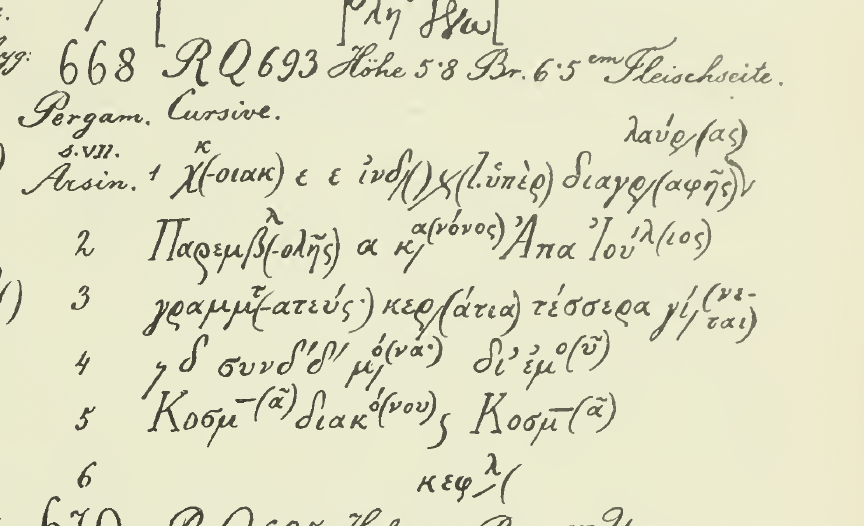 668 RQ 693 Höhe 5·8 Br. 6·5 em Fleischseite.
Pergam. Cursive.
s.VII.
λαύρ/(ας)
Arsin. 1 χ(-οιακ) ε ε ἰνδ/() χ(l.ὑπὲρ) διαγρ/(αφῆς)
2 Παρεμβ(-ολῆς) α κ/α(νόνος) Ἄπα Ἰουλ(ιος)
3 γραμμ(-ατεύς·) κερ/(άτια) τέσσερα γί/(νε-
ται)
4 δ συνδ'δ' μ/ό(να·) δι' ἐμο(ῦ)
5 Κοσμ–(ᾶ) διακό(νου) ς Κοσμ–(ᾶ)
6 κεφλ/(